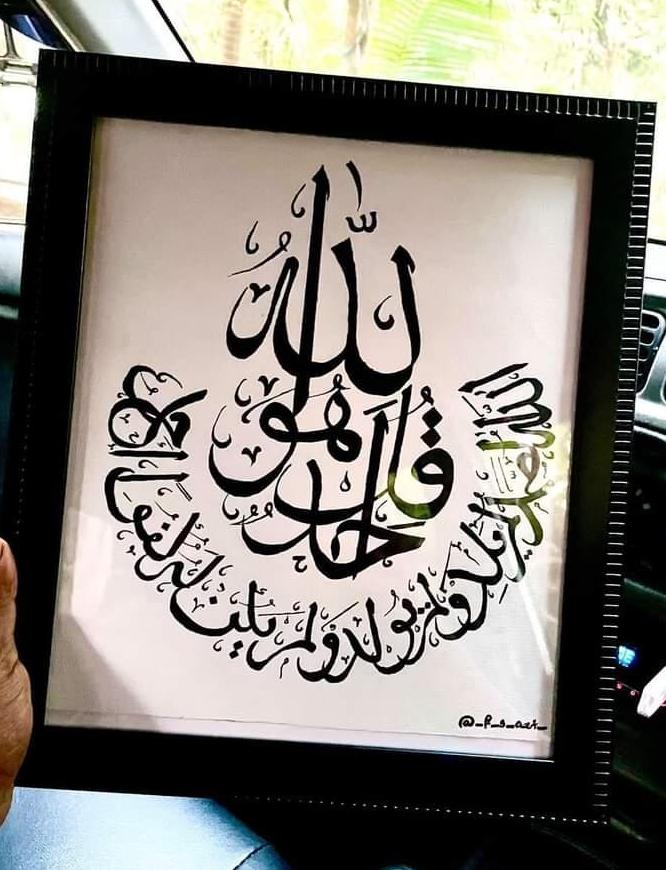 قُلْ هُوَ اللّٰهُ أَحَدٌ
الله الصمد لم يلد ولم يولد ولم يكن له كفوا احد